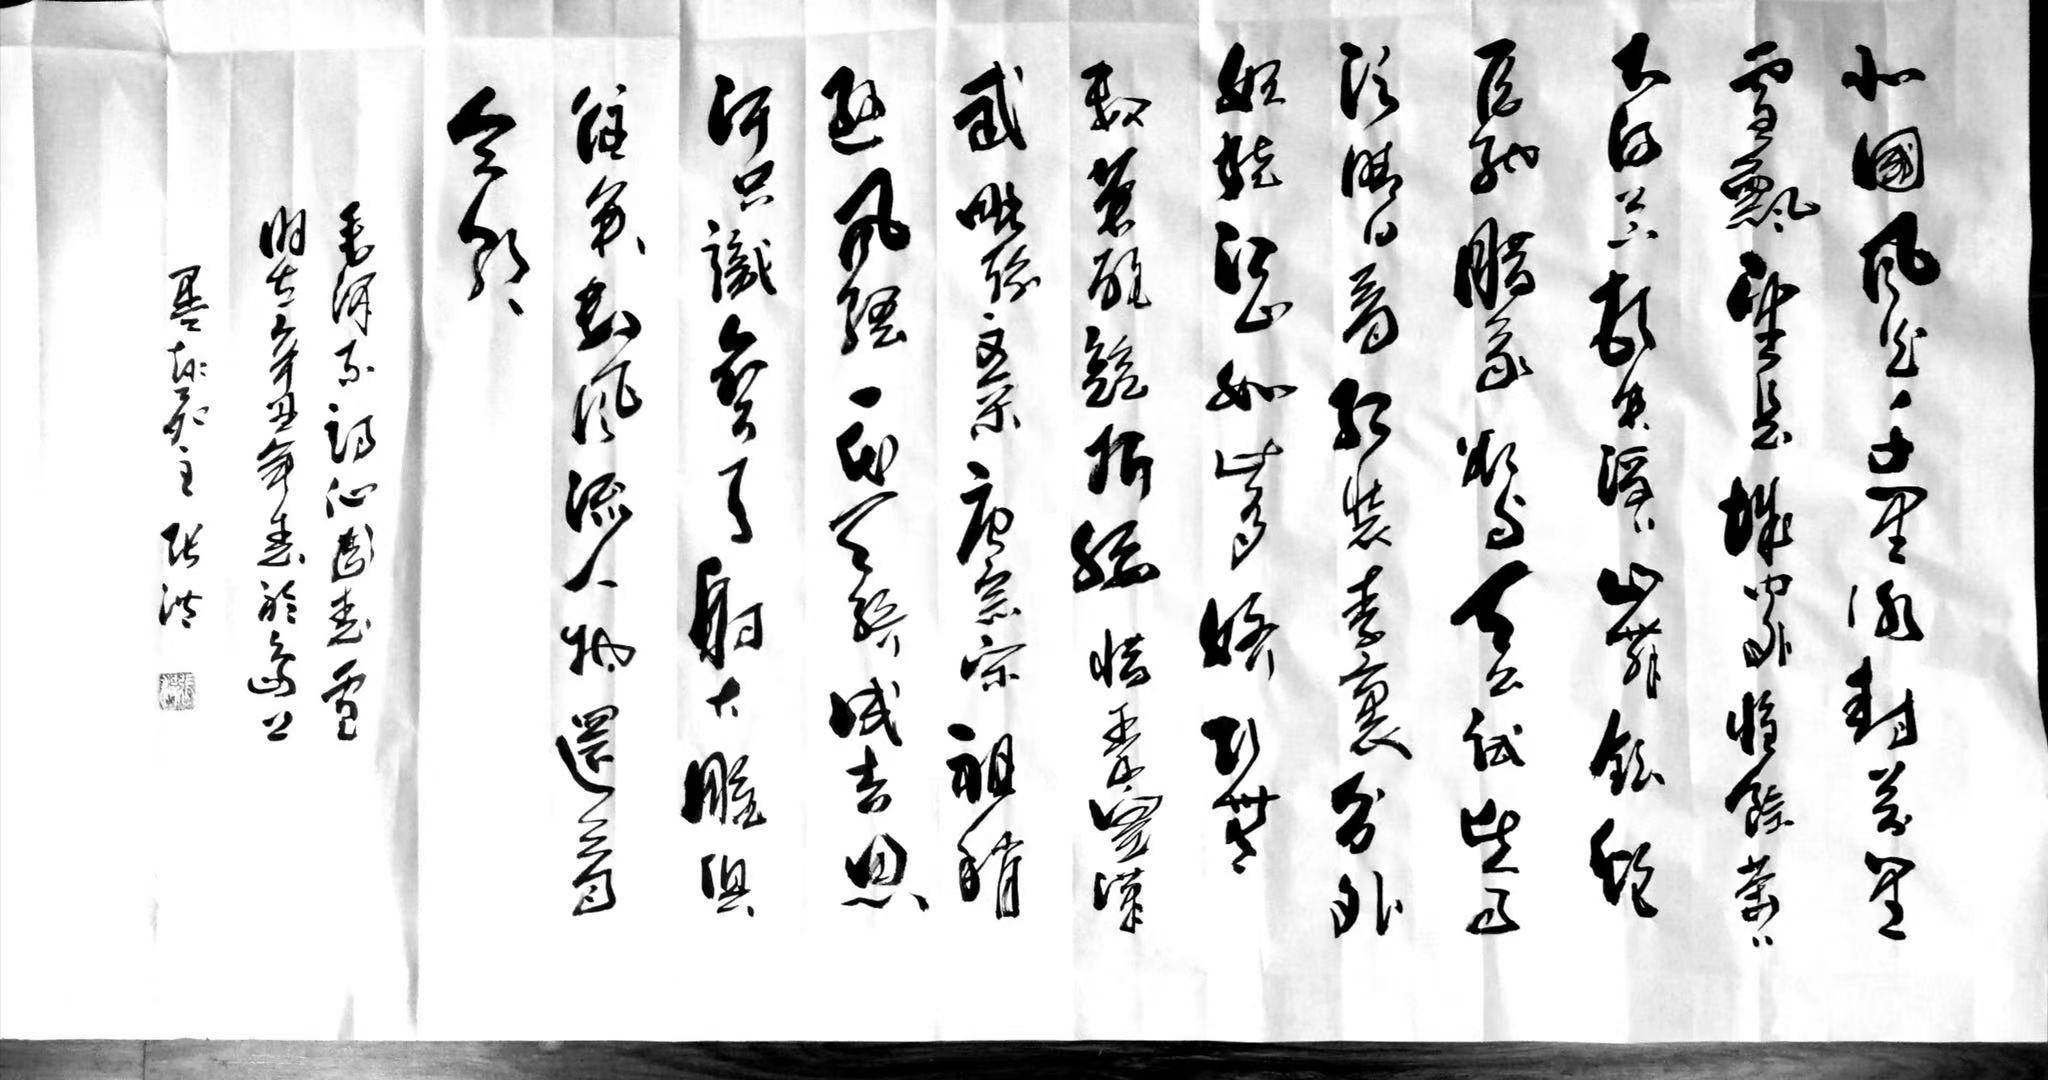 北國風光千里冰封萬里
雪飄望長城內外惟餘莽〻
大河上下頓失滔〻山舞銀蛇
原馳臘象欲與天公試比高
須晴日看紅裝素裹分外
妖嬈江山如此多嬌引無
數英雄競折腰惜秦皇漢
武略輸文采唐宗宋祖稍
遜風騷一代天驕成吉思
汗只識彎弓射大雕俱
往矣數風流人物還看
今朝
毛澤東詞沁園春雪
時在辛丑年春於
墨 主 張洪